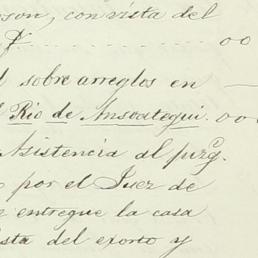 son, con vista del
₽ . . . . . . . . . . oo
l sobre arreglos en
Rio de Anseategui. oo
Asistencia al juzg.
por el Juez de
entregue la casa
sta del exorto y